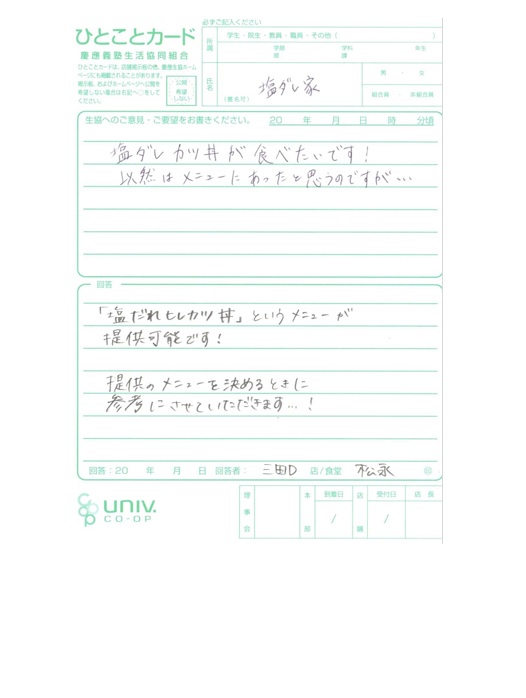 必ずご記入ください
ひとことカード
慶應義塾生活協同組合
ひとことカードは、店舗掲示板の他、慶應生協ホーム
ページにも掲載されることがあります。
掲示板、およびホームページへ公開を
希望しない場合は右記へ○をして
ください。
公開
希望
しない
所属
学生・院生・教員・職員・その他（　　）
学部 学科 年生
氏名
塩ダレ家
（匿名可）
男 ・ 女
組合員 ・ 非組合員
生協へのご意見・ご要望をお書きください。 20　年　月　日　時　分頃
塩ダレカツ丼が食べたいです!
以然はメニューにあったと思うのですが…
回答
「塩だれヒレカツ丼」というメニューが
提供可能です!
提供のメニューを決めるときに
参考にさせていただきます…!
回答：20　年　月　日 回答者： 三田D 店/食堂 松永 ㊞
UNIV.
CO-OP
理事会
本部
到着日
/
店舗
受付日
/
店長